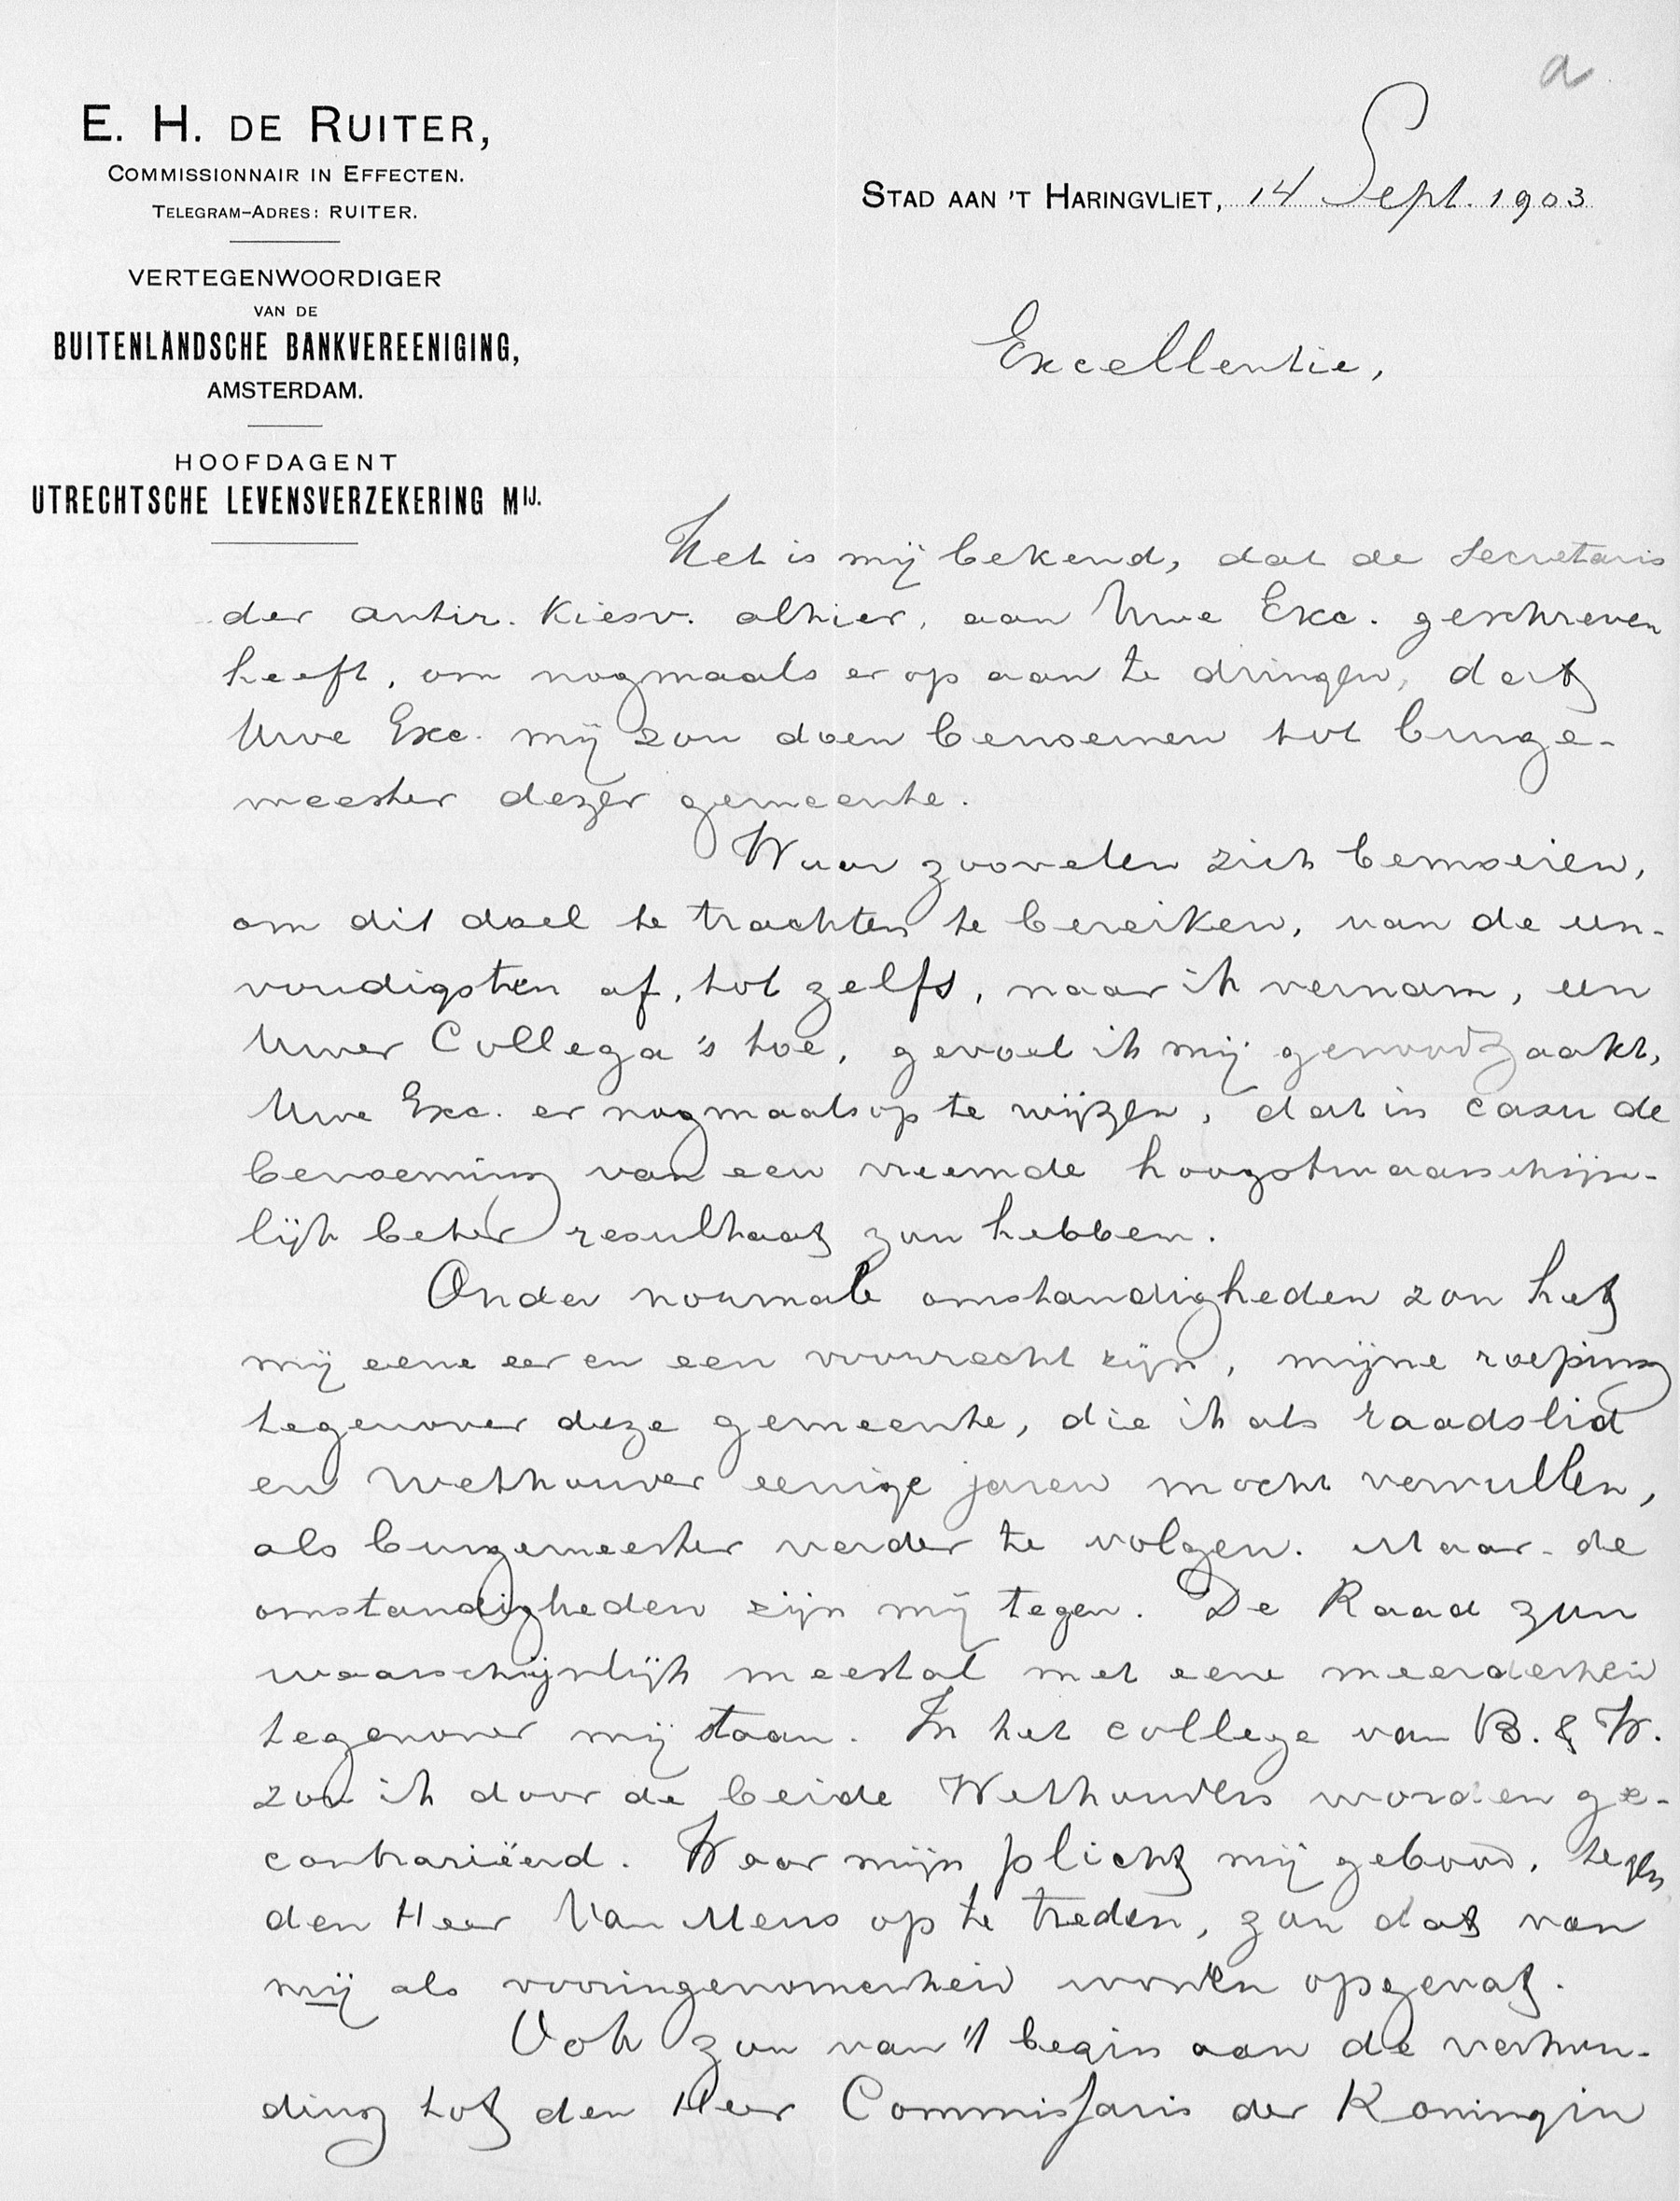 a
E. H. DE RUITER,
COMMISSIONNAIR IN EFFECTEN.
TELEGRAM-ADRES: RUITER.
VERTEGENWOORDIGER
VAN DE
BUITENLANDSCHE BANKVEREENIGING,
AMSTERDAM.
HOOFDAGENT
UTRECHTSCHE LEVENSVERZEKERING MIJ.
STAD AAN 'T HARINGVLIET, 14 Sept. 1903
Excellentie,
Het is mij bekend, dat de secretaris
der antir. Kiesv. alhier, aan Uwe Exc. geschreven
heeft, om nogmaals er op aan te dringen, dat
Uwe Exc. mij zou doen benoemen tot burge-
meester dezer gemeente.
Waar zoovelen zich bemoeien,
om dit doel te trachten te bereiken, van de een-
voudigsten af, tot zelfs, naar ik vernam, een
Uwer Collega's toe, gevoel ik mij genoodzaakt,
Uwe Exc. er nogmaals op te wijzen, dat in casu de
benoeming van een vreemde hoogstwaarschijn-
lijk beter resultaat zou hebben.
Onder normale omstandigheden zou het
mij eene eer en een voorrecht zijn, mijne roeping
tegenover deze gemeente, die ik als raadslid
en wethouder eenige jaren mocht vervullen,
als burgemeester verder te volgen. Maar de
omstandigheden zijn mij tegen. De Raad zou
waarschijnlijk meestal met eene meerderheid
tegenover mij staan. In het college van B. & W.
zou ik door de beide Wethouders worden ge-
contrariëerd. Waar mijn plicht mij gebood, tegen
den Heer Van Mens op te treden, zou dat van
mij als vooringenomenheid worden opgevat.
Ook zou van 't begin aan de verhou-
ding tot den Heer Commissaris der Koningin